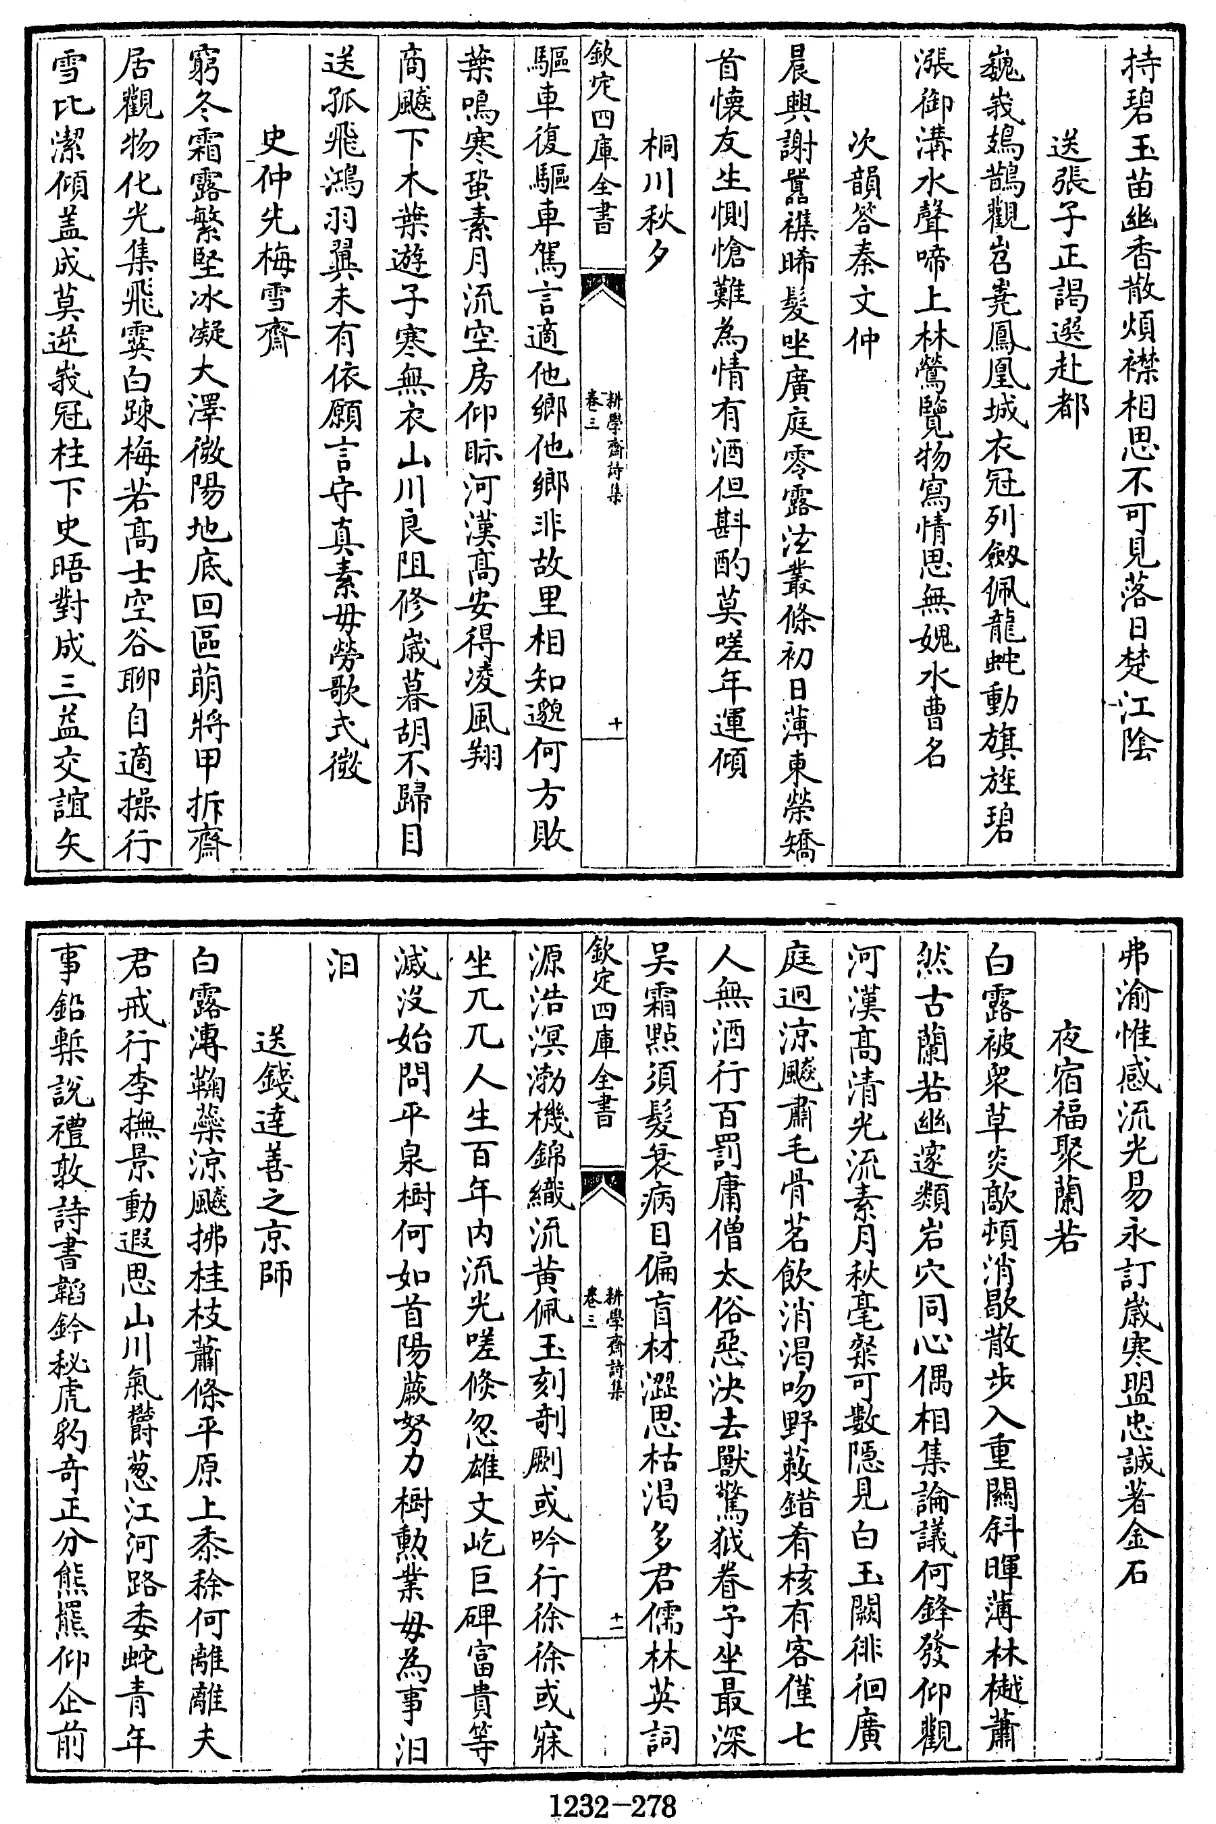 持碧玉苗幽香散煩襟相思不可見落日楚江陰
送張子正謁選赴都
巍峩鳷鵲觀岧嶤鳳凰城衣冠列劔佩龍蛇動旗旌碧
漲御溝水聲啼上林鶯覽物寫情思無媿水曹名
次韻答秦文仲
晨興謝囂襍晞髮坐廣庭零露泫叢條初日薄東榮矯
首懷友生惻愴難為情有酒但斟酌莫嗟年運傾
桐川秋夕
欽定四庫全書
耕學齋詩集
卷三
十
驅車復驅車駕言適他鄉他鄉非故里相知邈何方敗
葉鳴寒蛩素月流空房仰眎河漢高安得凌風翔
商飈下木葉遊子寒無衣山川良阻修嵗暮胡不歸目
送孤飛鴻羽翼未有依願言守真素毋勞歌式微
史仲先梅雪齋
窮冬霜露繁堅冰凝大澤微陽地底回區萌將甲拆齋
居觀物化光集飛霙白踈梅若髙士空谷聊自適操行
雪比潔傾盖成莫逆峩冠柱下史晤對成三益交誼矢
弗渝惟感流光易永訂嵗寒盟忠誠著金石
夜宿福聚蘭若
白露被衆草炎歊頓消歇散步入重關斜暉薄林樾蕭
然古蘭若幽邃類岩穴同心偶相集論議何鋒發仰觀
河漢髙清光流素月秋毫粲可數隱見白玉闕徘徊廣
庭迥涼飈肅毛骨茗飲消渴吻野蔌錯肴核有客僅七
人無酒行百罰庸僧太俗惡決去獸驚狘眷予坐最深
吴霜㸃須髮衰病目偏盲材澀思枯渴多君儒林英詞
欽定四庫全書
耕學齋詩集
卷三
十一
源浩溟渤機錦織流黄佩玉刻剞劂或吟行徐徐或寐
坐兀兀人生百年内流光嗟倏忽雄文屹巨碑富貴等
滅没始問平泉樹何如首陽蕨努力樹勲業毋為事汩
汩
送錢達善之京師
白露漙鞠蘂涼飈拂桂枝蕭條平原上黍稌何離離夫
君戒行李撫景動遐思山川氣鬱葱江河路委蛇青年
事鉛槧說禮敦詩書韜鈐秘虎豹奇正分熊羆仰企前
1232-278